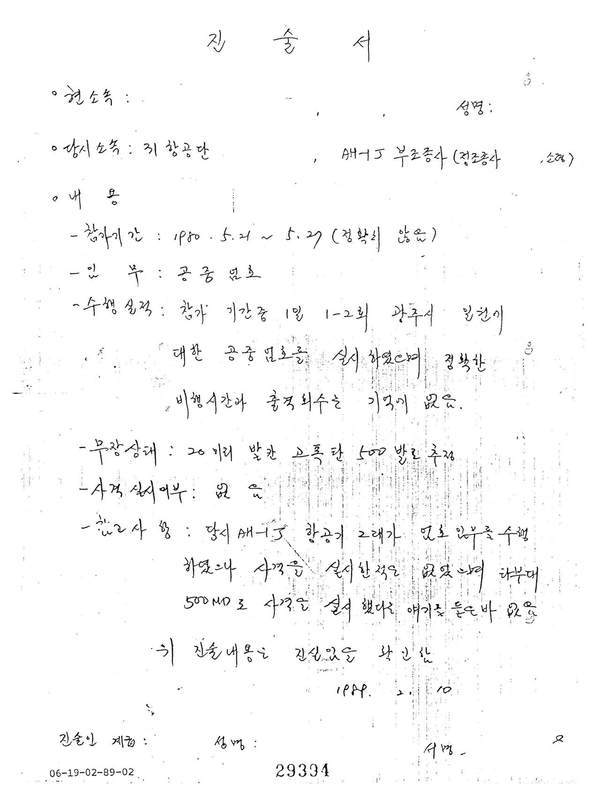 진 술 서
○현소속 :
성명 :
○당시소속 : 31 항공단 , AH-1J 부조종사 (정조종사 , 소령)
○내 용
- 참가기간 : 1980. 5. 21 ~ 5. 27 (정확치 않음)
- 임 무 : 공중 엄호
- 수행실적 : 참가 기간중 1일 1-2회 광주시 일원에
대한 공중엄호를 실시하였으며 정확한
비행시간과 출격회수는 기억에 없음.
- 무장상태 : 20미리 발칸 고폭탄 500발로 추정
- 사격실시여부 : 없 음
- 참고사항 : 당시 AH-1J 항공기 2대가 엄호임무를 수행
하였으나 사격을 실시한적은 없었으며 타부대
500MD로 사격을 실시했다는 얘기를 들은바 없음
위 진술내용은 진실임을 확인함
1989. 2. 10
진술인 계급 : 성명 : 서명
06-19-02-89-02
29394